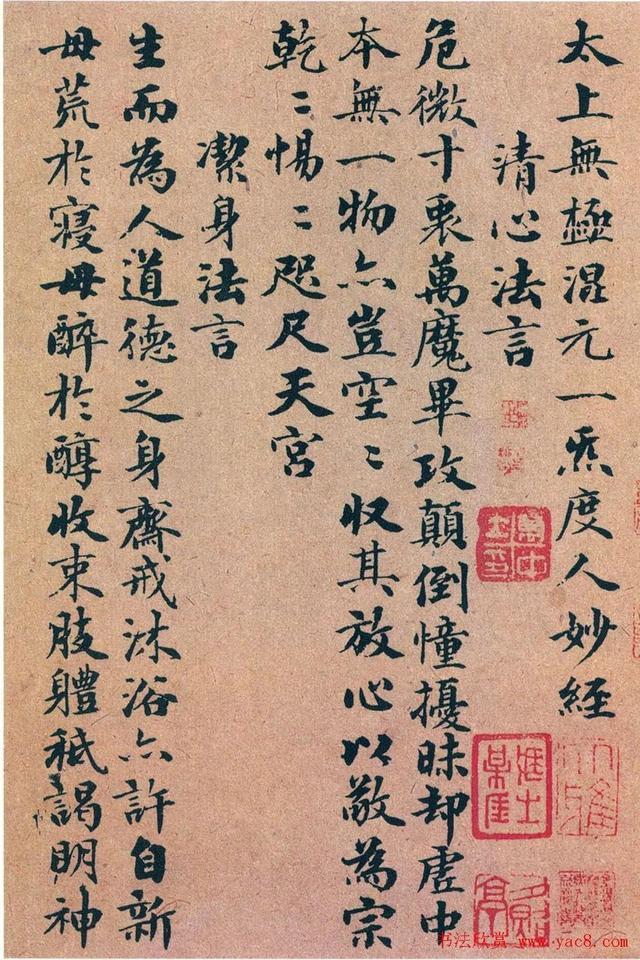 太上無極混元一炁度人妙經
清心法言
危微寸衷萬魔畢攻顛倒憧擾昧却虛中
本無一物亦豈空〻収其放心以敬為宗
乾〻惕〻咫尺天宮
潔身法言
生而為人道德之身齋戒沐浴亦許自新
毋荒於寢毋醉於醇收束肢體秪謁明神
书法欣赏 www.yac8.com